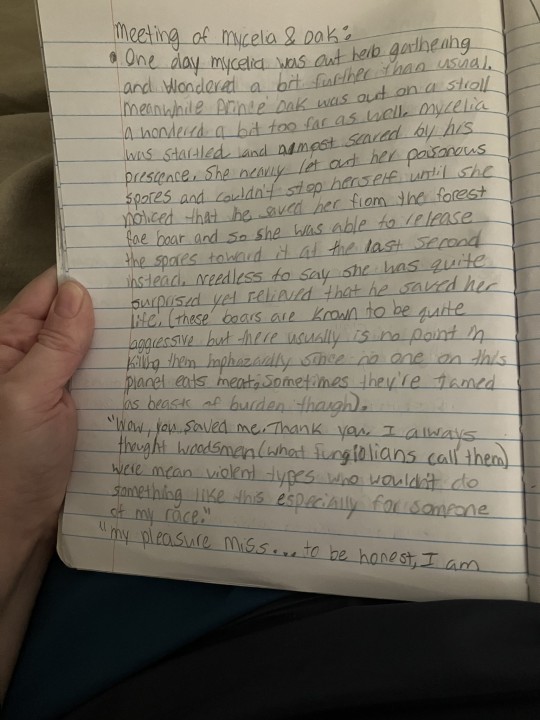 meeting of mycelia & oak:
• One day mycelia was out herb gathering
and wondered a bit further than usual.
meanwhile Prince oak was out on a stroll
a wondered a bit too far as well. mycelia
was startled and almost scared by his
prescence. She nearly let out her poisonous
spores and couldn't stop herself until she
noticed that he saved her from the forest
fae boar and so she was able to release
the spores toward it at the last second
instead. needless to say she was quite
surprised yet relieved that he saved her
life. (these boars are known to be quite
aggressive but there usually is no point in
killing them haphazardly since no one on this
planet eats meat; sometimes they're tamed
as beasts of burden though).
"Wow, you saved me. Thank you. I always
thought woodsmen (what fungiolians call them)
were mean violent types who wouldn't do
something like this especially for someone
of my race."
"my pleasure miss... to be honest, I am